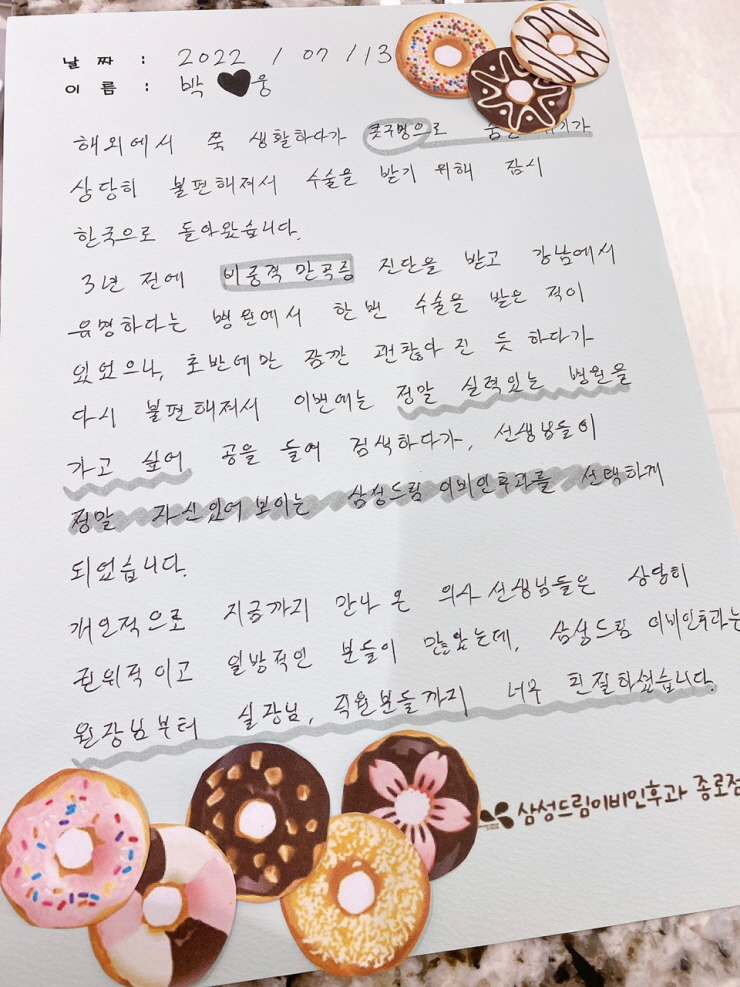 날 짜 : 2022 / 07 / 13
이 름 : 박 ♥웅
해외에서 쭉 생활하다가 콧구멍으로
상당히 불편해져서 수술을 받기 위해 잠시
한국으로 돌아왔습니다.
3년 전에 비중격 만곡증 진단을 받고 강남에서
유명하다는 병원에서 한번 수술을 받은 적이
있었으나, 초반에만 잠깐 괜찮아 진 듯 하다가
다시 불편해져서 이번에는 정말 실력있는 병원을
가고 싶어 공을 들여 검색하다가, 선생님들이
정말 자신있어 보이는 삼성드림 이비인후과를 선택하게
되었습니다.
개인적으로 지금까지 만나 온 의사 선생님들은 상당히
권위적이고 일방적인 분들이 많았는데, 삼성드림 이비인후과는
원장님부터 실장님, 직원분들까지 너무 친절하셨습니다.
삼성드림이비인후과 종로점